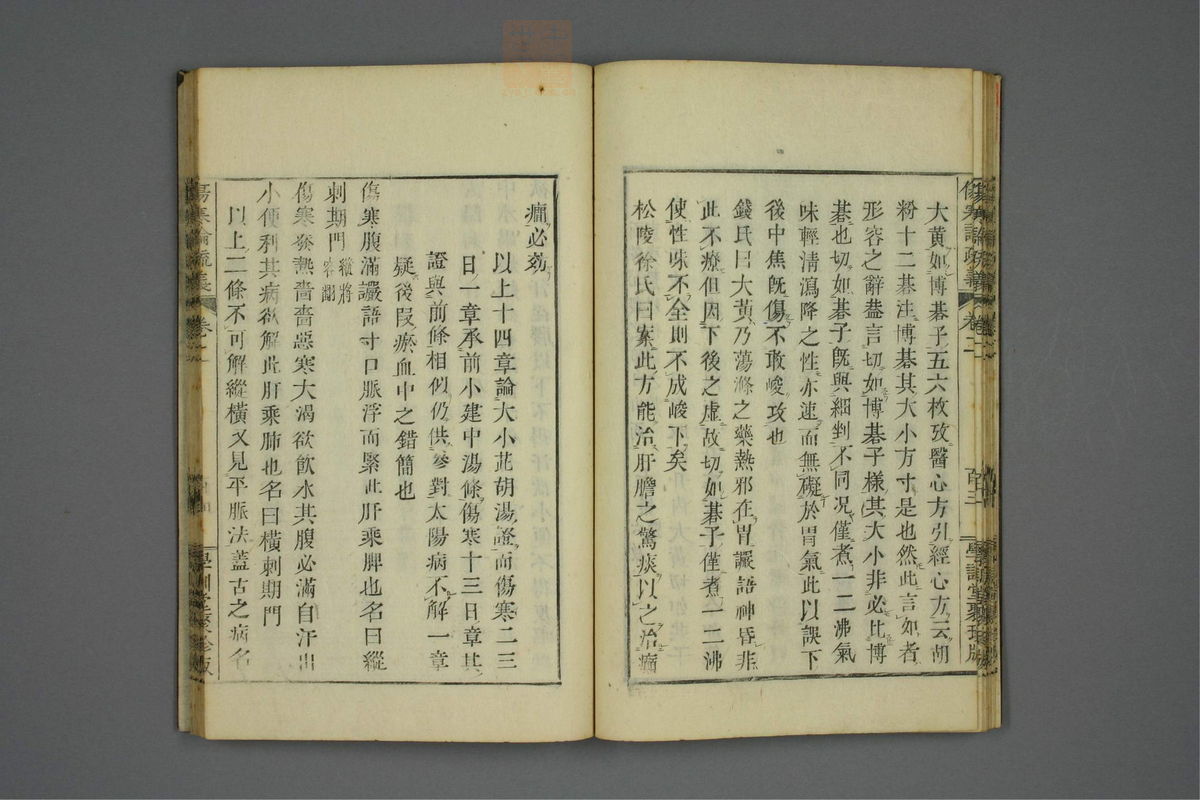 大黃如博碁子五六枚攷醫心方引經心方云胡
粉十二碁注博碁其大小方寸是也然此言如者
形容之辭蓋言切如博碁子樣其大小非必比博
碁也切如碁子旣與細剉不同况僅煮一二沸氣
味輕淸瀉降之性亦速而無礙於胃氣此以誤下
後中焦旣傷不敢峻攻也
錢氏曰大黃乃蕩滌之藥熱邪在胃讝語神昏非
此不療但因下後之虛故切如碁子僅煮一二沸
使性味不全則不成峻下矣
松陵徐氏曰案此方能治肝膽之驚痰以之治癲
癇必効
以上十四章論大小茈胡湯證而傷寒二三
日一章承前小建中湯條傷寒十三日章其
證與前條相似仍供參對太陽病不解一章
疑後段瘀血中之錯簡也
傷寒腹滿讝語寸口脈浮而緊此肝乘脾也名曰縱
刺期門縱將容翻
傷寒發熱嗇嗇惡寒大渴欲飮水其腹必滿自汗出
小便利其病欲解此肝乘肺也名曰橫刺期門
以上二條不可解縱橫又見平脈法蓋古之病名
傷寒論疏義
卷二
學訓堂聚珍版